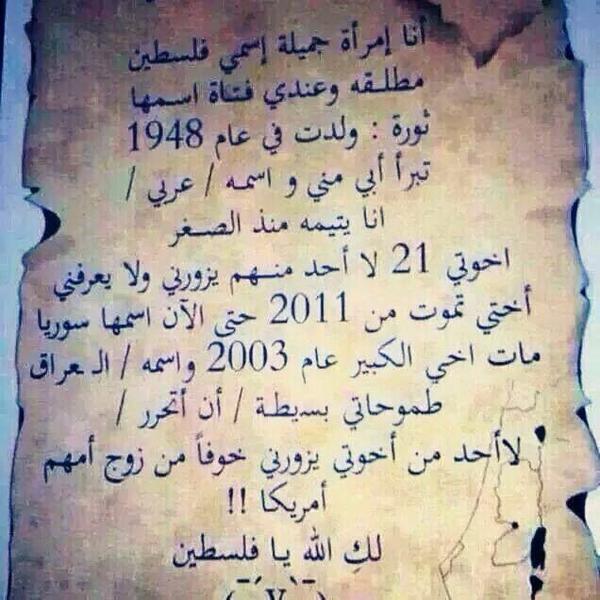 أنا إمرأة جميلة إسمي فلسطين
مطلقه وعندي فتاة اسمها
ثورة : ولدت في عام 1948
تبرأ أبي مني و اسمه / عربي /
انا يتيمه منذ الصغر
اخوتي 21 لا أحد منهم يزورني ولا يعرفني
أختي تموت من 2011 حتى الآن اسمها سوريا
مات اخي الكبير عام 2003 واسمه / العراق
طموحاتي بسيطة / أن أتحرر /
لاأحد من أخوتي يزورني خوفاً من زوج أمهم
أمريكا !!
لكِ الله يا فلسطين